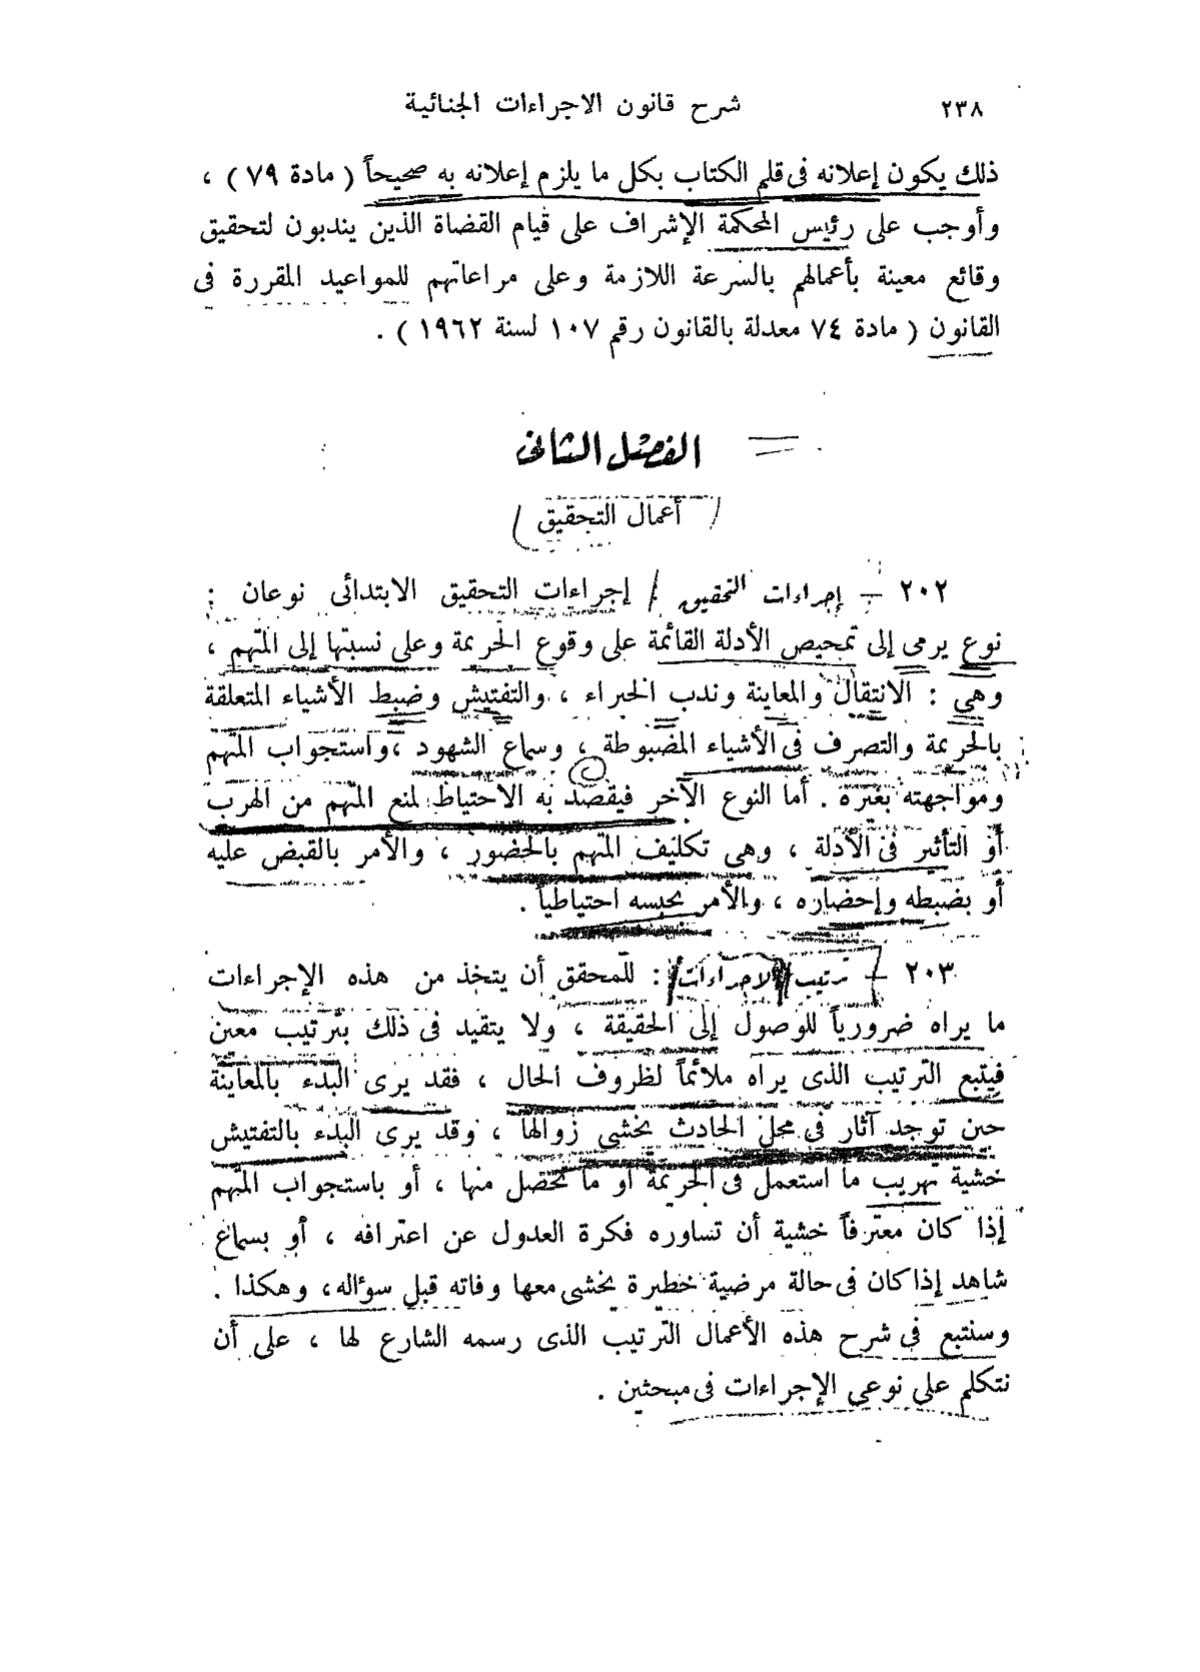 ٢٣٨ شرح قانون الاجراءات الجنائية
ذلك يكون إعلانه فى قلم الكتاب بكل ما يلزم إعلانه به صحيحاً ( مادة ٧٩ ) ،
وأوجب على رئيس المحكمة الإشراف على قيام القضاة الذين يندبون لتحقيق
وقائع معينة بأعمالهم بالسرعة اللازمة وعلى مراعاتهم للمواعيد المقررة فى
القانون ( مادة ٧٤ معدلة بالقانون رقم ١٠٧ لسنة ١٩٦٢ ) .
الفصل الثانى
أعمال التحقيق
٢٠٢ — إجراءات التحقيق : إجراءات التحقيق الابتدائى نوعان :
نوع يرمى إلى تمحيص الأدلة القائمة على وقوع الجريمة وعلى نسبتها إلى المتهم ،
وهى : الانتقال والمعاينة وندب الخبراء ، والتفتيش وضبط الأشياء المتعلقة
بالجريمة والتصرف فى الأشياء المضبوطة ، وسماع الشهود ، واستجواب المتهم
ومواجهته بغيره . أما النوع الآخر فيقصد به الاحتياط لمنع المتهم من الهرب
أو التأثير فى الأدلة ، وهى تكليف المتهم بالحضور ، والأمر بالقبض عليه
أو بضبطه وإحضاره ، والأمر بحبسه احتياطياً .
٢٠٣ — ترتيب الاجراءات : للمحقق أن يتخذ من هذه الإجراءات
ما يراه ضرورياً للوصول إلى الحقيقة ، ولا يتقيد فى ذلك بترتيب معين
فيتبع الترتيب الذى يراه ملائماً لظروف الحال ، فقد يرى البدء بالمعاينة
حين توجد آثار فى محل الحادث يخشى زوالها ، وقد يرى البدء بالتفتيش
خشية تهريب ما استعمل فى الجريمة أو ما تحصل منها ، أو باستجواب المتهم
إذا كان معترفاً خشية أن تساوره فكرة العدول عن اعترافه ، أو بسماع
شاهد إذا كان فى حالة مرضية خطيرة يخشى معها وفاته قبل سؤاله ، وهكذا .
وسنتبع فى شرح هذه الأعمال الترتيب الذى رسمه الشارع لها ، على أن
نتكلم على نوعى الإجراءات فى مبحثين .